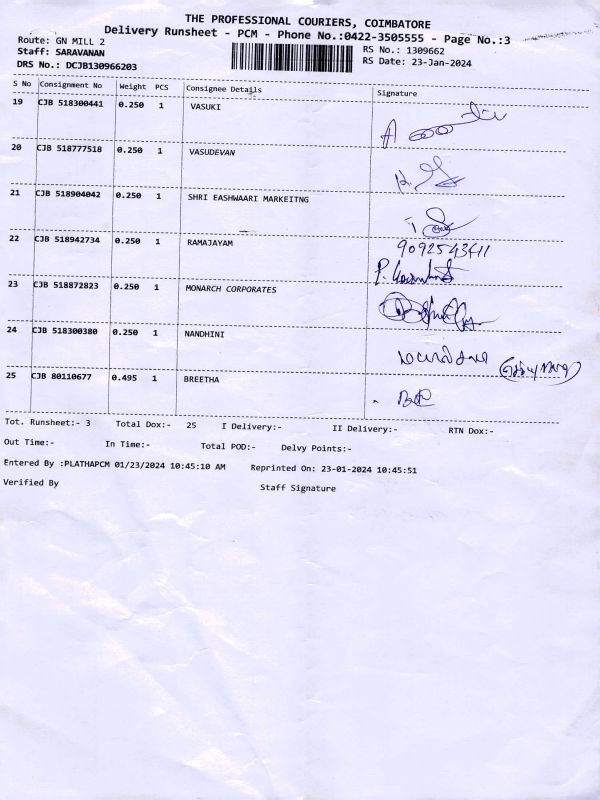 THE PROFESSIONAL COURIERS, COIMBATORE
Delivery Runsheet - PCM - Phone No.:0422-3505555 - Page No.:3
Route: GN MILL 2 RS No.: 1309662
Staff: SARAVANAN RS Date: 23-Jan-2024
DRS No.: DCJB130966203
S No Consignment No Weight PCS Consignee Details Signature
19 CJB 518300441 0.250 1 VASUKI
20 CJB 518777518 0.250 1 VASUDEVAN
21 CJB 518904042 0.250 1 SHRI EASHWAARI MARKEITNG
22 CJB 518942734 0.250 1 RAMAJAYAM 9092543411
23 CJB 518872823 0.250 1 MONARCH CORPORATES
24 CJB 518300380 0.250 1 NANDHINI
25 CJB 80110677 0.495 1 BREETHA
Tot. Runsheet:- 3 Total Dox:- 25 I Delivery:- II Delivery:- RTN Dox:-
Out Time:- In Time:- Total POD:- Delvy Points:-
Entered By :PLATHAPCM 01/23/2024 10:45:10 AM Reprinted On: 23-01-2024 10:45:51
Verified By Staff Signature